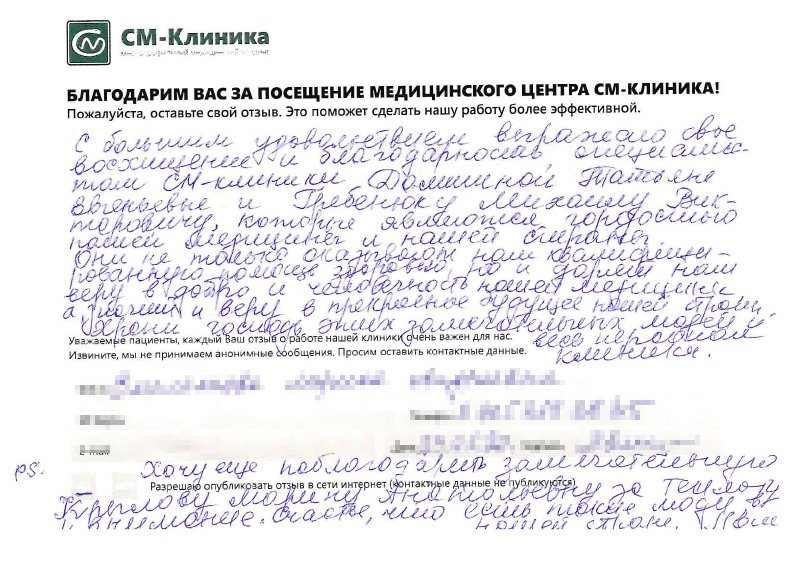 СМ-Клиника
многопрофильный медицинский холдинг
БЛАГОДАРИМ ВАС ЗА ПОСЕЩЕНИЕ МЕДИЦИНСКОГО ЦЕНТРА СМ-КЛИНИКА!
Пожалуйста, оставьте свой отзыв. Это поможет сделать нашу работу более эффективной.
С большим удовольствием выражаю свое
восхищение и благодарность специалис-
там СМ-клиники Домшиной Татьяне
Евгеньевне и Гребенюку Михаилу Вик-
торовичу, которые являются гордостью
нашей медицины и нашей страны.
Они не только оказывают нам квалифици-
рованную помощь здоровью, но и дарят нам
веру в добро и человечность нашей медицины
а значит и веру в прекрасное будущее нашей страны.
Храни господь этих замечательных людей и
Уважаемые пациенты, каждый Ваш отзыв о работе нашей клиники очень важен для нас.
весь персонал
Извините, мы не принимаем анонимные сообщения. Просим оставить контактные данные.
клиники.
E-mail
P.S. Хочу еще поблагодарить замечательную
Разрешаю опубликовать отзыв в сети интернет (контактные данные не публикуются)
Крылову Марину Анатольевну за теплоту
и внимание. Счастье, что есть такие люди в
нашей стране.